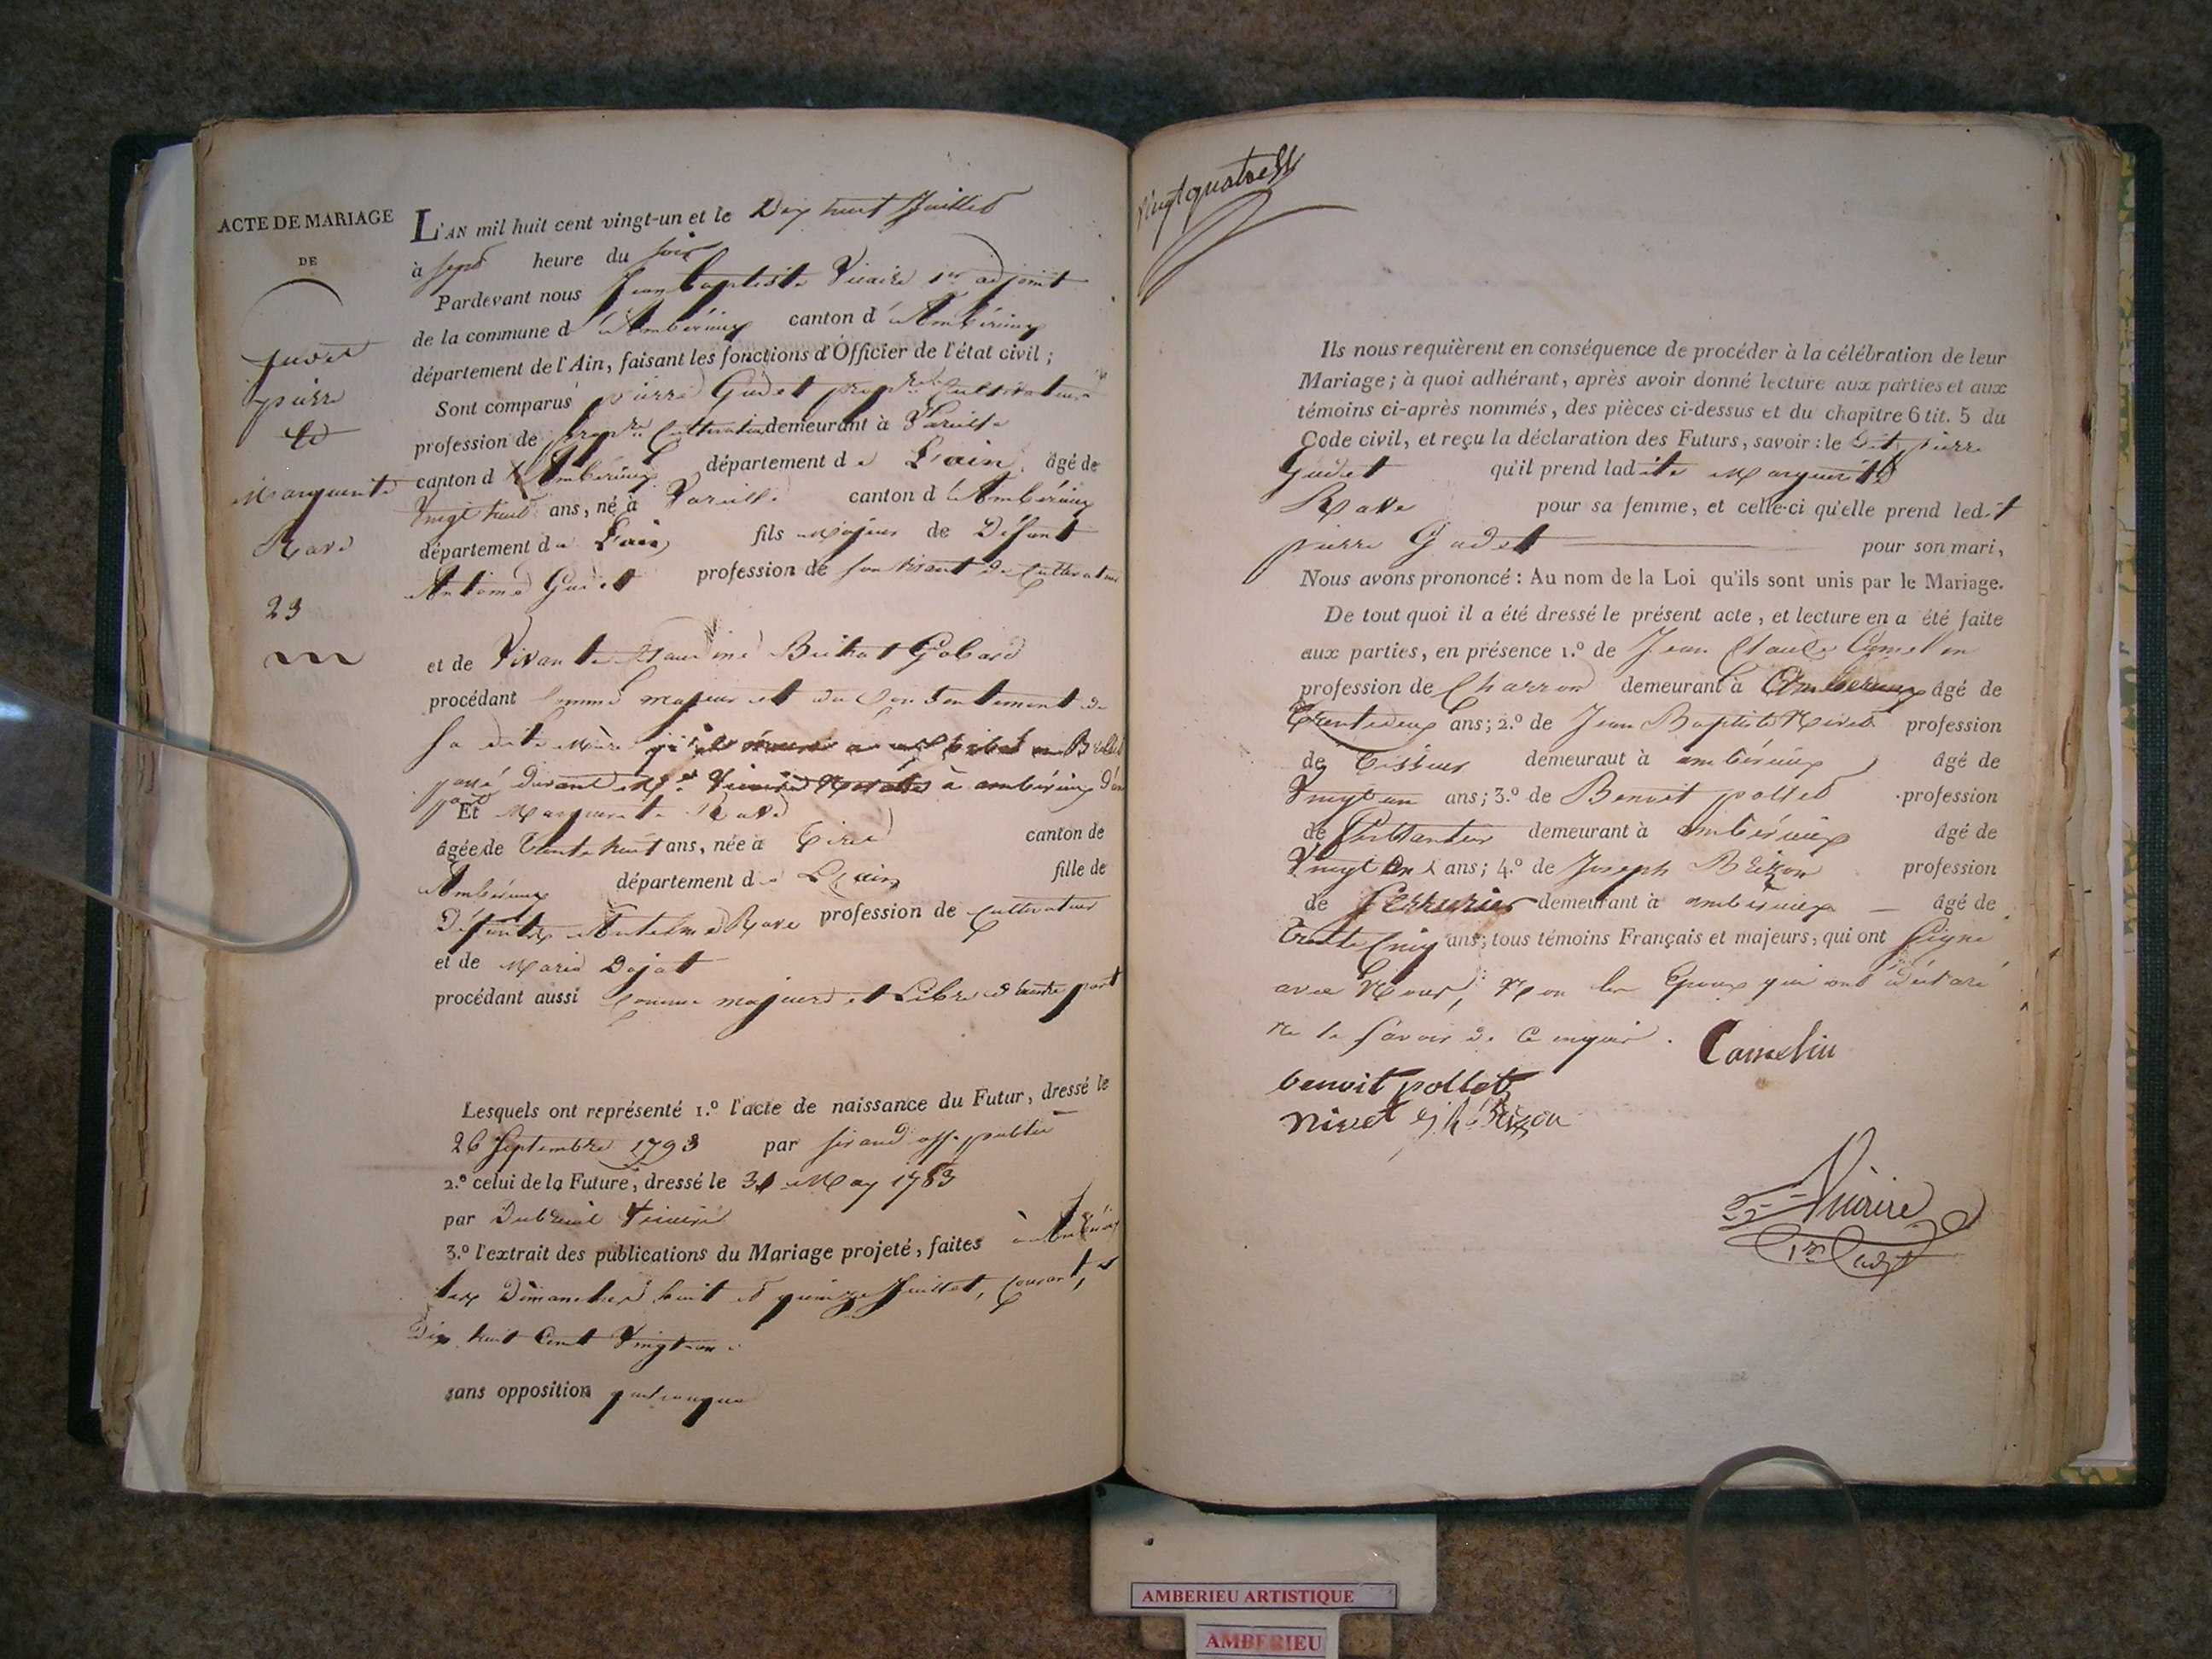 ACTE DE MARIAGE
DE
Gudet
pierre
et
Marguerite
Rave
23
L'AN mil huit cent vingt-un et le Dix huit Juillet
à sept heure du soir
Pardevant nous Jean baptiste Vicaire 1er adjoint
de la commune d'Ambérieux canton d'Ambérieux
département de l'Ain, faisant les fonctions d'Officier de l'état civil;
Sont comparus pierre Gudet propre Cultivateur
profession de propre Cultivateur demeurant à Vareille
canton d'Ambérieux département de L'ain, âgé de
Vingt huit ans, né à Vareille canton d'Ambérieux
département de L'ain fils Majeur de Défunt
Antoine Gudet profession de son vivant de Cultivateur
et de Vivante Claudine Gobard
procédant Comme majeur et du Consentement de
sa dite Mère
passé à ambérieux
Et Marguerite Rave
âgée de Trente huit ans, née à canton de
Ambérieux département de L'ain fille de
Défunt Antelme Rave profession de Cultivateur
et de Marie Dojat
procédant aussi Comme majeure et Libre d'autre part
Lesquels ont représenté 1.º l'acte de naissance du Futur, dressé le
26 Septembre 1793 par Sirand off. public
2.º celui de la Future, dressé le 31 May 1783
par Dubreuil Vicaire
3.º l'extrait des publications du Mariage projeté, faites à Ambérieux
les Dimanches huit et quinze Juillet, Courant,
Dix huit Cent Vingt-un
sans opposition quelconque
Vingt quatre
Ils nous requièrent en conséquence de procéder à la célébration de leur
Mariage; à quoi adhérant, après avoir donné lecture aux parties et aux
témoins ci-après nommés, des pièces ci-dessus et du chapitre 6 tit. 5 du
Code civil, et reçu la déclaration des Futurs, savoir: le Dit pierre
Gudet qu'il prend ladite Marguerite
Rave pour sa femme, et celle-ci qu'elle prend ledit
pierre Gudet pour son mari,
Nous avons prononcé: Au nom de la Loi qu'ils sont unis par le Mariage.
De tout quoi il a été dressé le présent acte, et lecture en a été faite
aux parties, en présence 1.º de Jean Claude Camelin
profession de Charron demeurant à Ambérieux âgé de
Trente deux ans; 2.º de Jean Baptiste Nivet profession
de Tisseur demeuraut à ambérieux âgé de
Vingt un ans; 3.º de Benoit pollet profession
de demeurant à ambérieux âgé de
Vingt un ans; 4.º de Joseph Brizon profession
de Serrurier demeurant à ambérieux âgé de
Trente Cinq ans; tous témoins Français et majeurs, qui ont Signé
avec Nous, Non les Epoux qui ont déclaré
ne le Savoir de Ce enquis.
Camelin
benoit pollet
nivet jh Brizon
Vicaire
1er adjt
AMBERIEU ARTISTIQUE
AMBERIEU